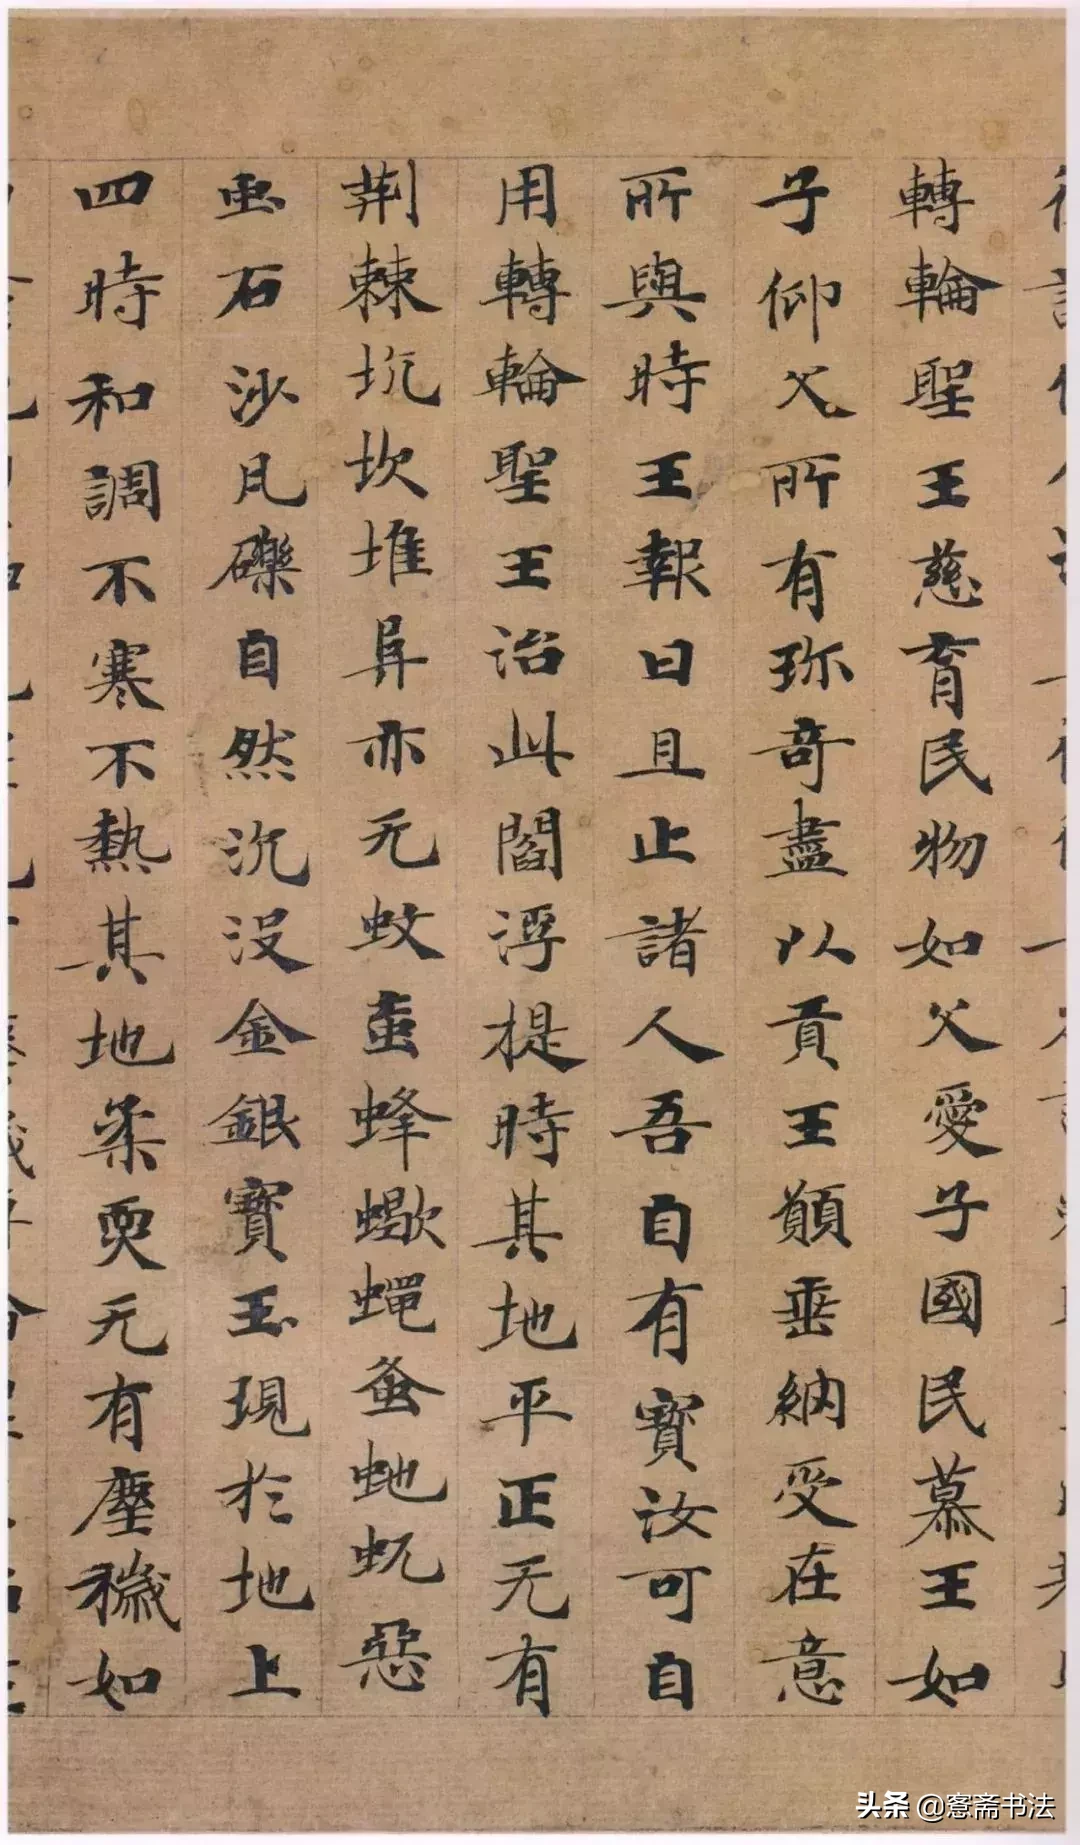 轉輪聖王慈育民物如父愛子國民慕王如
子仰父所有珎奇盡以貢王願垂納受在意
所與時王報曰且止諸人吾自有寶汝可自
用轉輪聖王治此閻浮提時其地平正无有
荆棘坑坎堆阜亦无蚊虻蜂蠍蠅蚤虵蚖惡
玉石沙凡礫自然沉没金銀寶玉現於地上
四時和調不寒不熱其地柔耎无有塵穢如
头条 @窓斋书法